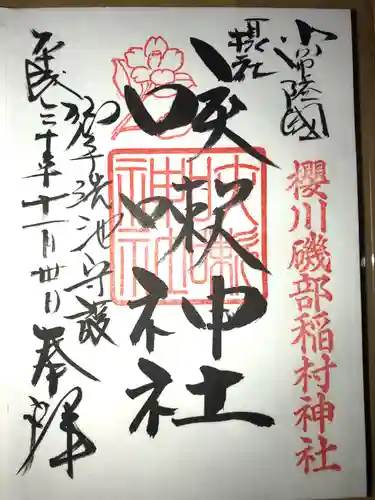 常陸國
摂社
櫻川磯部稲村神社
咲嗽神社
御手洗池守護
三十年十一月卅日
奉拝